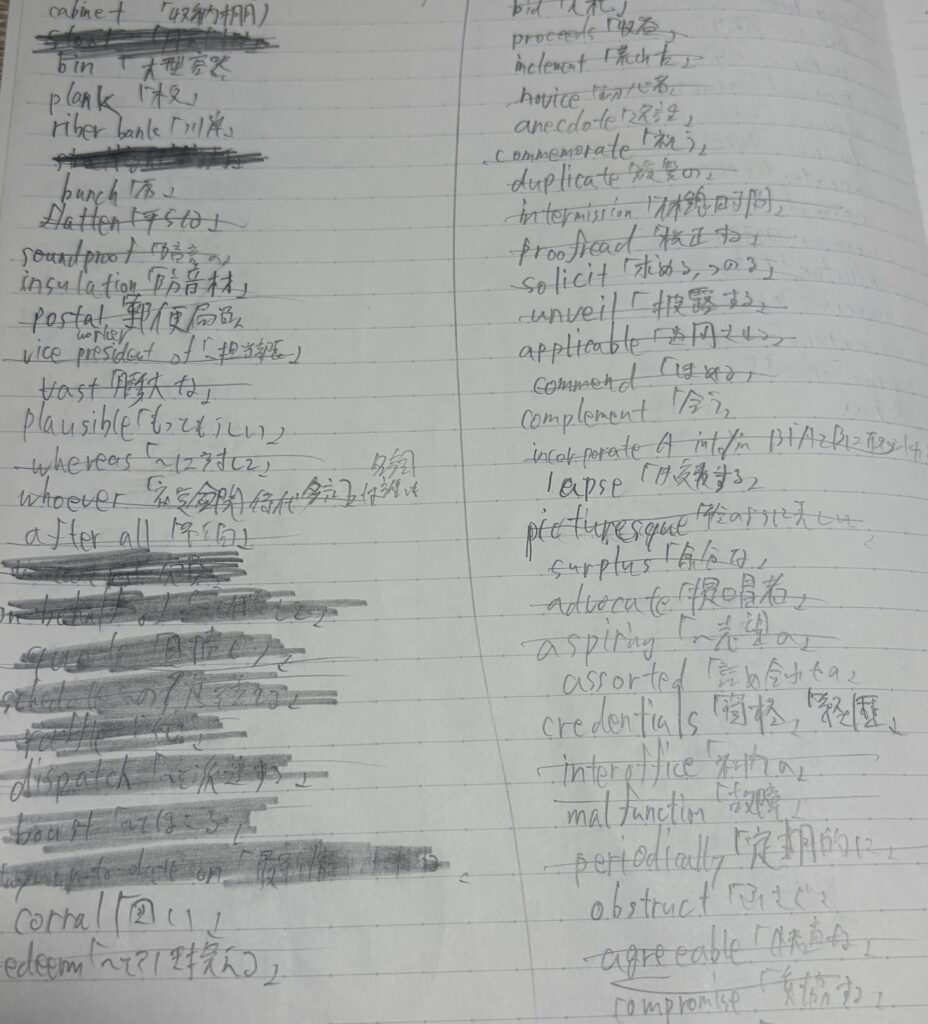 cabinet 「収納棚」
bin 「大型容器
plank 「板」
riber bank 「川岸」
bunch 「房」
flatten 「平らな」
soundproof 「防音の」
insulation 「防音材」
postal worker 「郵便局員」
vice president of 「〜担当部長」
vast 「膨大な」
plausible 「もっともらしい」
whereas 「〜に対して」
whoever
after all 「結局」
on behalf of
dispatch 「〜を派遣する」
boast 「〜でほこる」
up-to-date on 「最新情
corral 「囲い」
edeem
bid 「入札」
proceeds 「収益」
inclement 「荒れた」
novice 「初心者」
anecdote 「逸話」
commemorate 「祝う」
duplicate 「複製の」
intermission 「休憩時間」
proofread 「校正する」
solicit 「求める、つのる」
unveil 「披露する」
applicable 「適用される」
commend 「ほめる」
complement 「合う」
incorporate A into/in B
lapse
picturesque 「絵のように美しい」
surplus 「余分な」
advocate 「提唱者」
aspiring 「〜志望の」
assorted 「詰め合わせの」
credentials 「資格」「経歴」
interoffice 「社内の」
malfunction 「故障」
periodically 「定期的に」
obstruct 「ふさぐ」
agreeable 「快適な」
compromise 「妥協する」